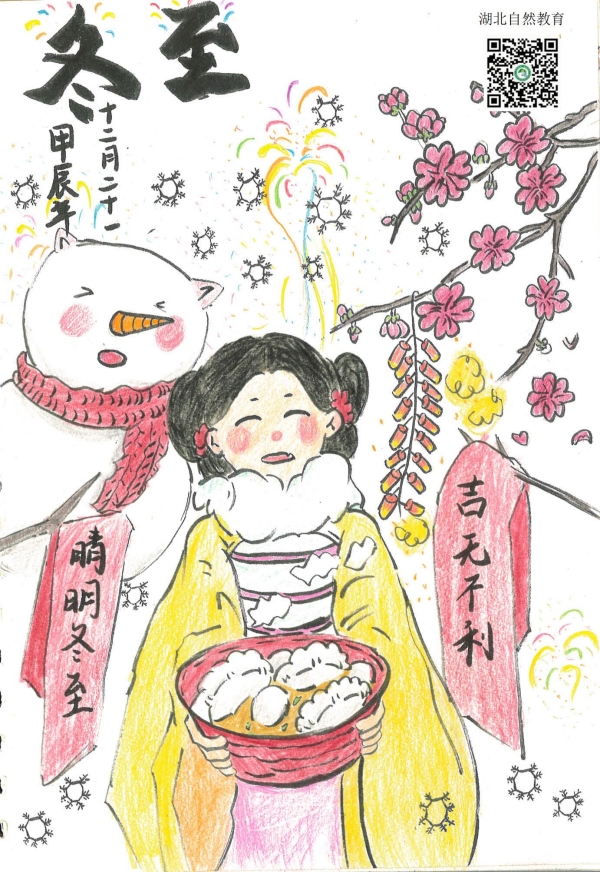 冬至
湖北自然教育
十二月二十一
甲辰年
晴明冬至
吉无不利